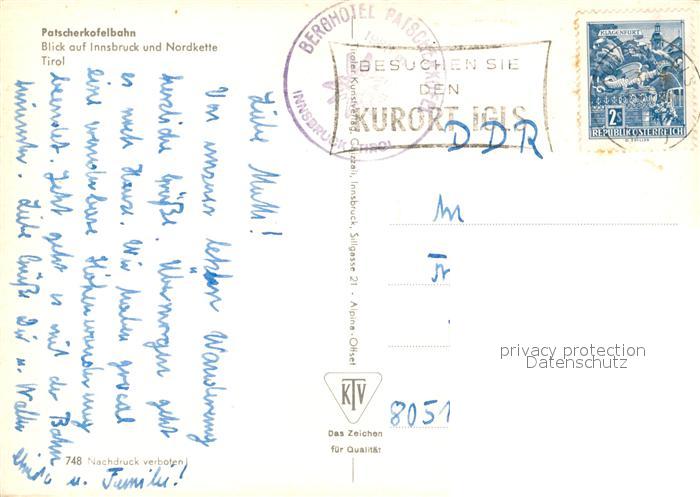 Patscherkofelbahn
Blick auf Innsbruck und Nordkette
Tirol
Liebe Mutti!
Von unserer letzten Wanderung
herzliche Grüße. Übermorgen geht
es nach Hause. Wir haben grad
eine wunderbare Höhenwanderung
beendet. Jetzt geht es mit der Bahn
hinunter. Liebe Grüße Dir u. Walter
u. Familie!
748 Nachdruck verboten!
Tiroler Kunstverlag Chizzali, Innsbruck, Sillgasse 21 - Alpina-Offset
BERGHOTEL PATSCHERKOFEL
INNSBRUCK TIROL
BESUCHEN SIE
DEN
KURORT IGLS
KLAGENFURT
2S
REPUBLIK ÖSTERREICH
DDR
8051
KTV
Das Zeichen
für Qualität
privacy protection
Datenschutz